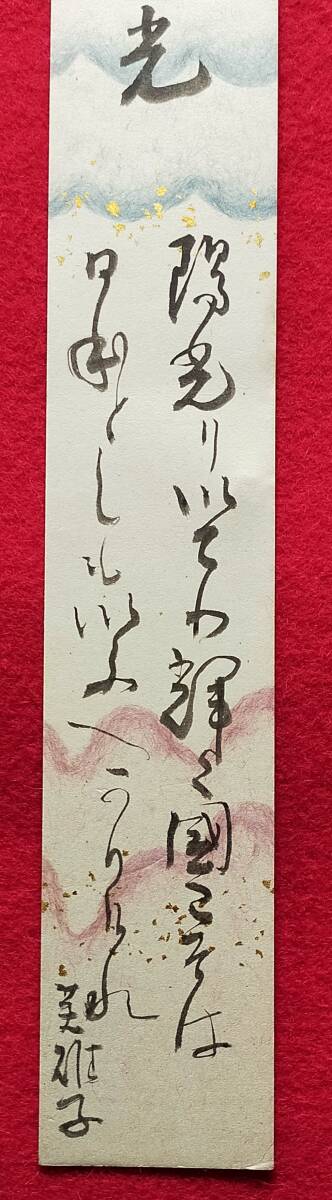 光
陽光りいてり輝く國こそは
日本としもいふへかりけれ
美雅子